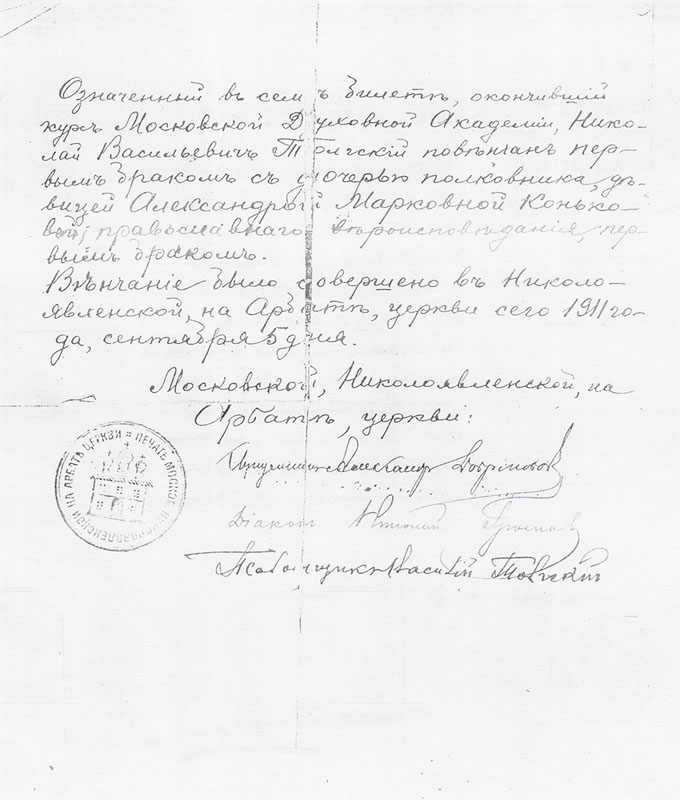 Означенный въ семъ билетѣ, окончившiй
курсъ Московской Духовной Академiи, Нико-
лай Васильевичъ Толгскiй повѣнчанъ пер-
вымъ бракомъ съ дочерью полковника, дѣ-
вицей Александрой Марковной Конько-
вой, православнаго вѣроисповѣданiя, пер-
вымъ бракомъ.
Вѣнчанiе было совершено въ Николо-
явленской, на Арбатѣ, церкви сего 1911 го-
да, сентября 5 дня.
Московской, Николоявленской, на
Арбатѣ, церкви:
Александр
Дiаконъ
Псаломщикъ Василiй
ПЕЧАТЬ МОСКОВ НИКОЛОЯВЛЕНСКОЙ НА АРБАТѢ ЦЕРКВИ